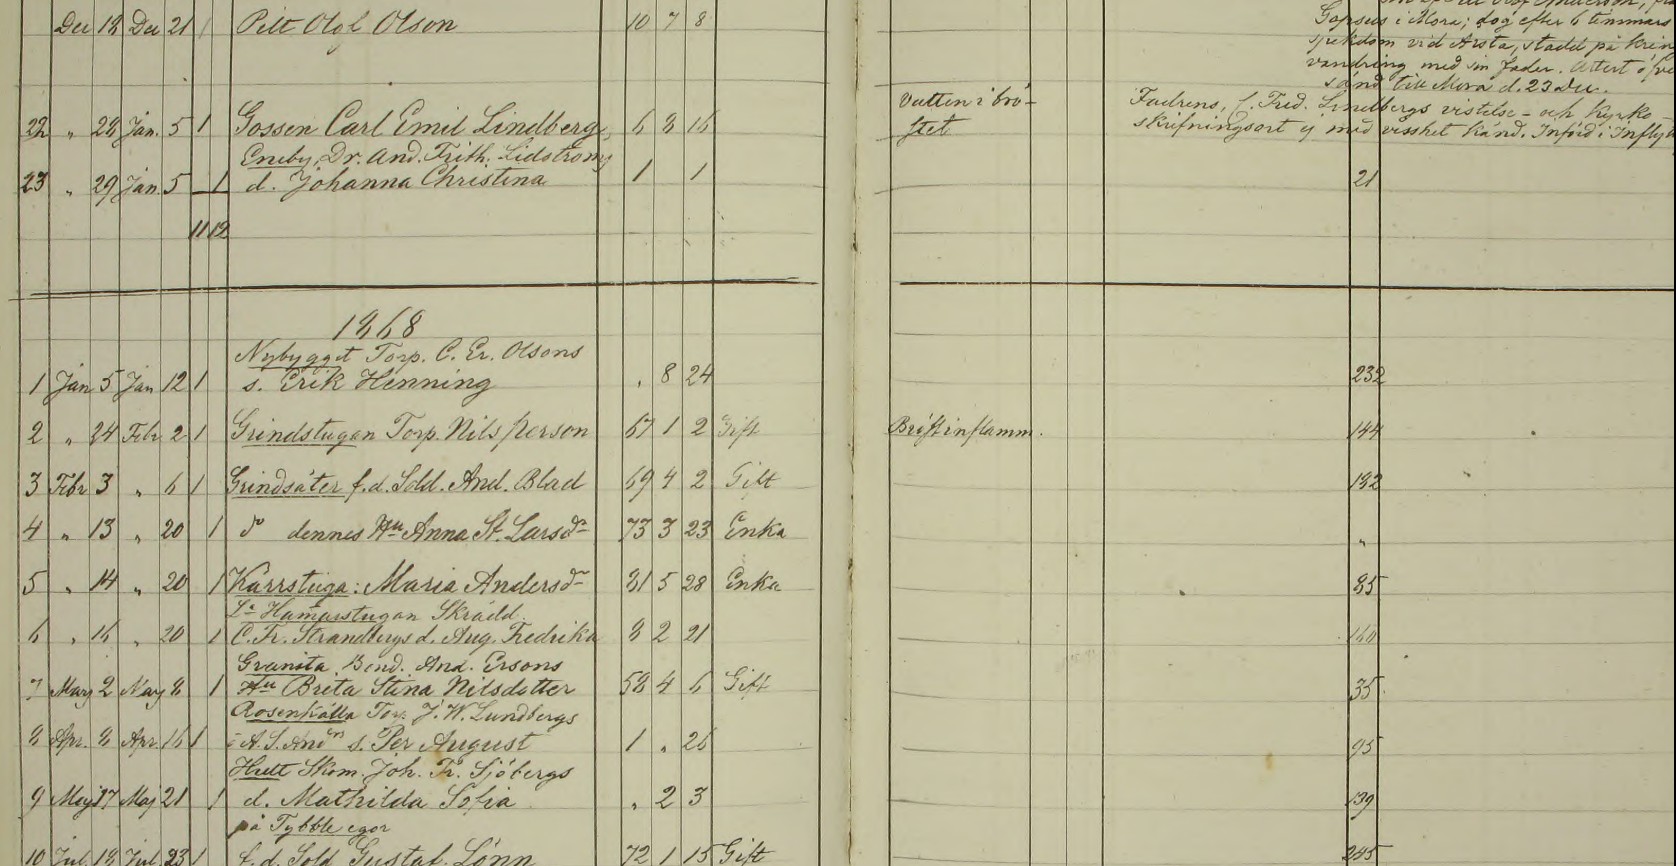 Gopsus i Mora; dog efter 6 timmars
Dec 18 Dec 21 1 Pilt Olof Olson 10 7 8
sjukdom vid Årsta, stadd på
vandring med sin fader. Attest
sänd till Mora d. 23 Dec.
22 " 28 Jan. 5 1 Gossen Carl Emil Lindberg 6 8 16 Vatten i brö-
stet
Fadrens, f. Fred. Lindbergs vistelse- och kyrko-
skrifningsort ej med visshet känd. Införd i
Eneby, Dr. And. Frith. Lidströms
23 " 29 Jan. 5 1 d. Johanna Christina 1 1 21
11 12
1868
Nybygget Torp. C. Er. Olsons
1 Jan 5 Jan 12 1 s. Erik Henning " 8 24 232
2 " 24 Febr 2 1 Grindstugan Torp. Nils Person 67 1 2 Gift Bröstinflamm. 144
3 Febr 3 " 6 1 Grindsäter f.d. Sold. And. Blad 69 4 2 Gift 182
4 " 13 " 20 1 do dennes Hu Anna St. Larsdr 73 3 23 Enka "
5 " 14 " 20 1 Kärrstuga: Maria Andersdr 81 5 28 Enka 85
Hamarstugan Skrädd.
6 " 16 " 20 1 C. Fr. Strandbergs d. Aug. Fredrika 8 2 21 160
Granita Bond. And. Ersons
7 Mars 2 8 1 Hu Brita Stina Nilsdotter 58 4 6 Gift 35
Rosenkälla Torp. J. W. Lundbergs
8 Apr. 8 Apr. 16 1 A. S. s. Per August 1 " 26 95
Hult Skom. Joh. Fr. Sjöbergs
9 Maj 17 Maj 21 1 d. Mathilda Sofia " 2 3 139
på Tybble egor
10 Jul. 18 Jul. 23 1 f.d. Sold. Gustaf Lönn 72 1 15 Gift 245